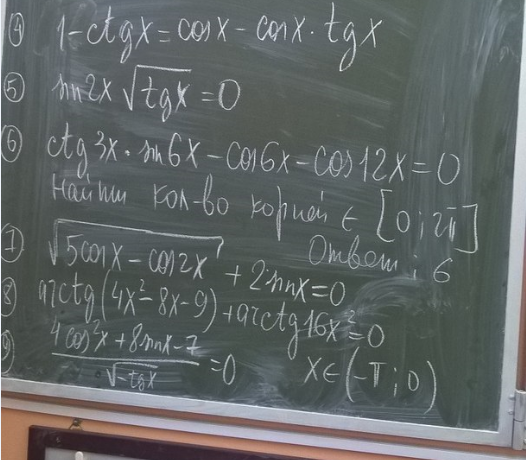 ④ 1-ctgx = cosx - cosx · tgx
⑤ sin2x √tgx = 0
⑥ ctg3x · sin6x - cos6x - cos12x = 0
Найти кол-во корней ∈ [0; 2π]
Ответ: 6
⑦ √5cosx - cos2x + 2·sinx = 0
⑧ arctg(4x²-8x-9) + arctg16x² = 0
⑨ 4cos²x + 8sinx - 7 / √-tgx = 0 x ∈ (-π; 0)